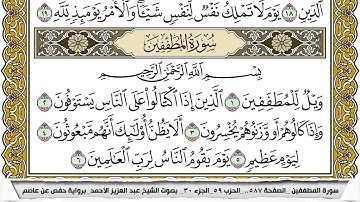 ٱلدِّينِ ١٨ يَوۡمَ لَا تَمۡلِكُ نَفۡسٞ لِّنَفۡسٖ شَيۡـٔٗاۖ وَٱلۡأَمۡرُ يَوۡمَئِذٖ لِّلَّهِ ١٩
سُورَةُ المُطَفِّفِينَ
بِسۡمِ ٱللَّهِ ٱلرَّحۡمَٰنِ ٱلرَّحِيمِ
وَيۡلٞ لِّلۡمُطَفِّفِينَ ١ ٱلَّذِينَ إِذَا ٱكۡتَالُواْ عَلَى ٱلنَّاسِ يَسۡتَوۡفُونَ ٢
وَإِذَا كَالُوهُمۡ أَو وَّزَنُوهُمۡ يُخۡسِرُونَ ٣ أَلَا يَظُنُّ أُوْلَٰٓئِكَ أَنَّهُم مَّبۡعُوثُونَ ٤
لِيَوۡمٍ عَظِيمٖ ٥ يَوۡمَ يَقُومُ ٱلنَّاسُ لِرَبِّ ٱلۡعَٰلَمِينَ ٦
سورة المطففين _الصفحة ٥٨٧_ الحزب ٥٩_ الجزء ٣٠_ بصوت الشيخ عبد العزيز الأحمد_ برواية حفص عن عاصم